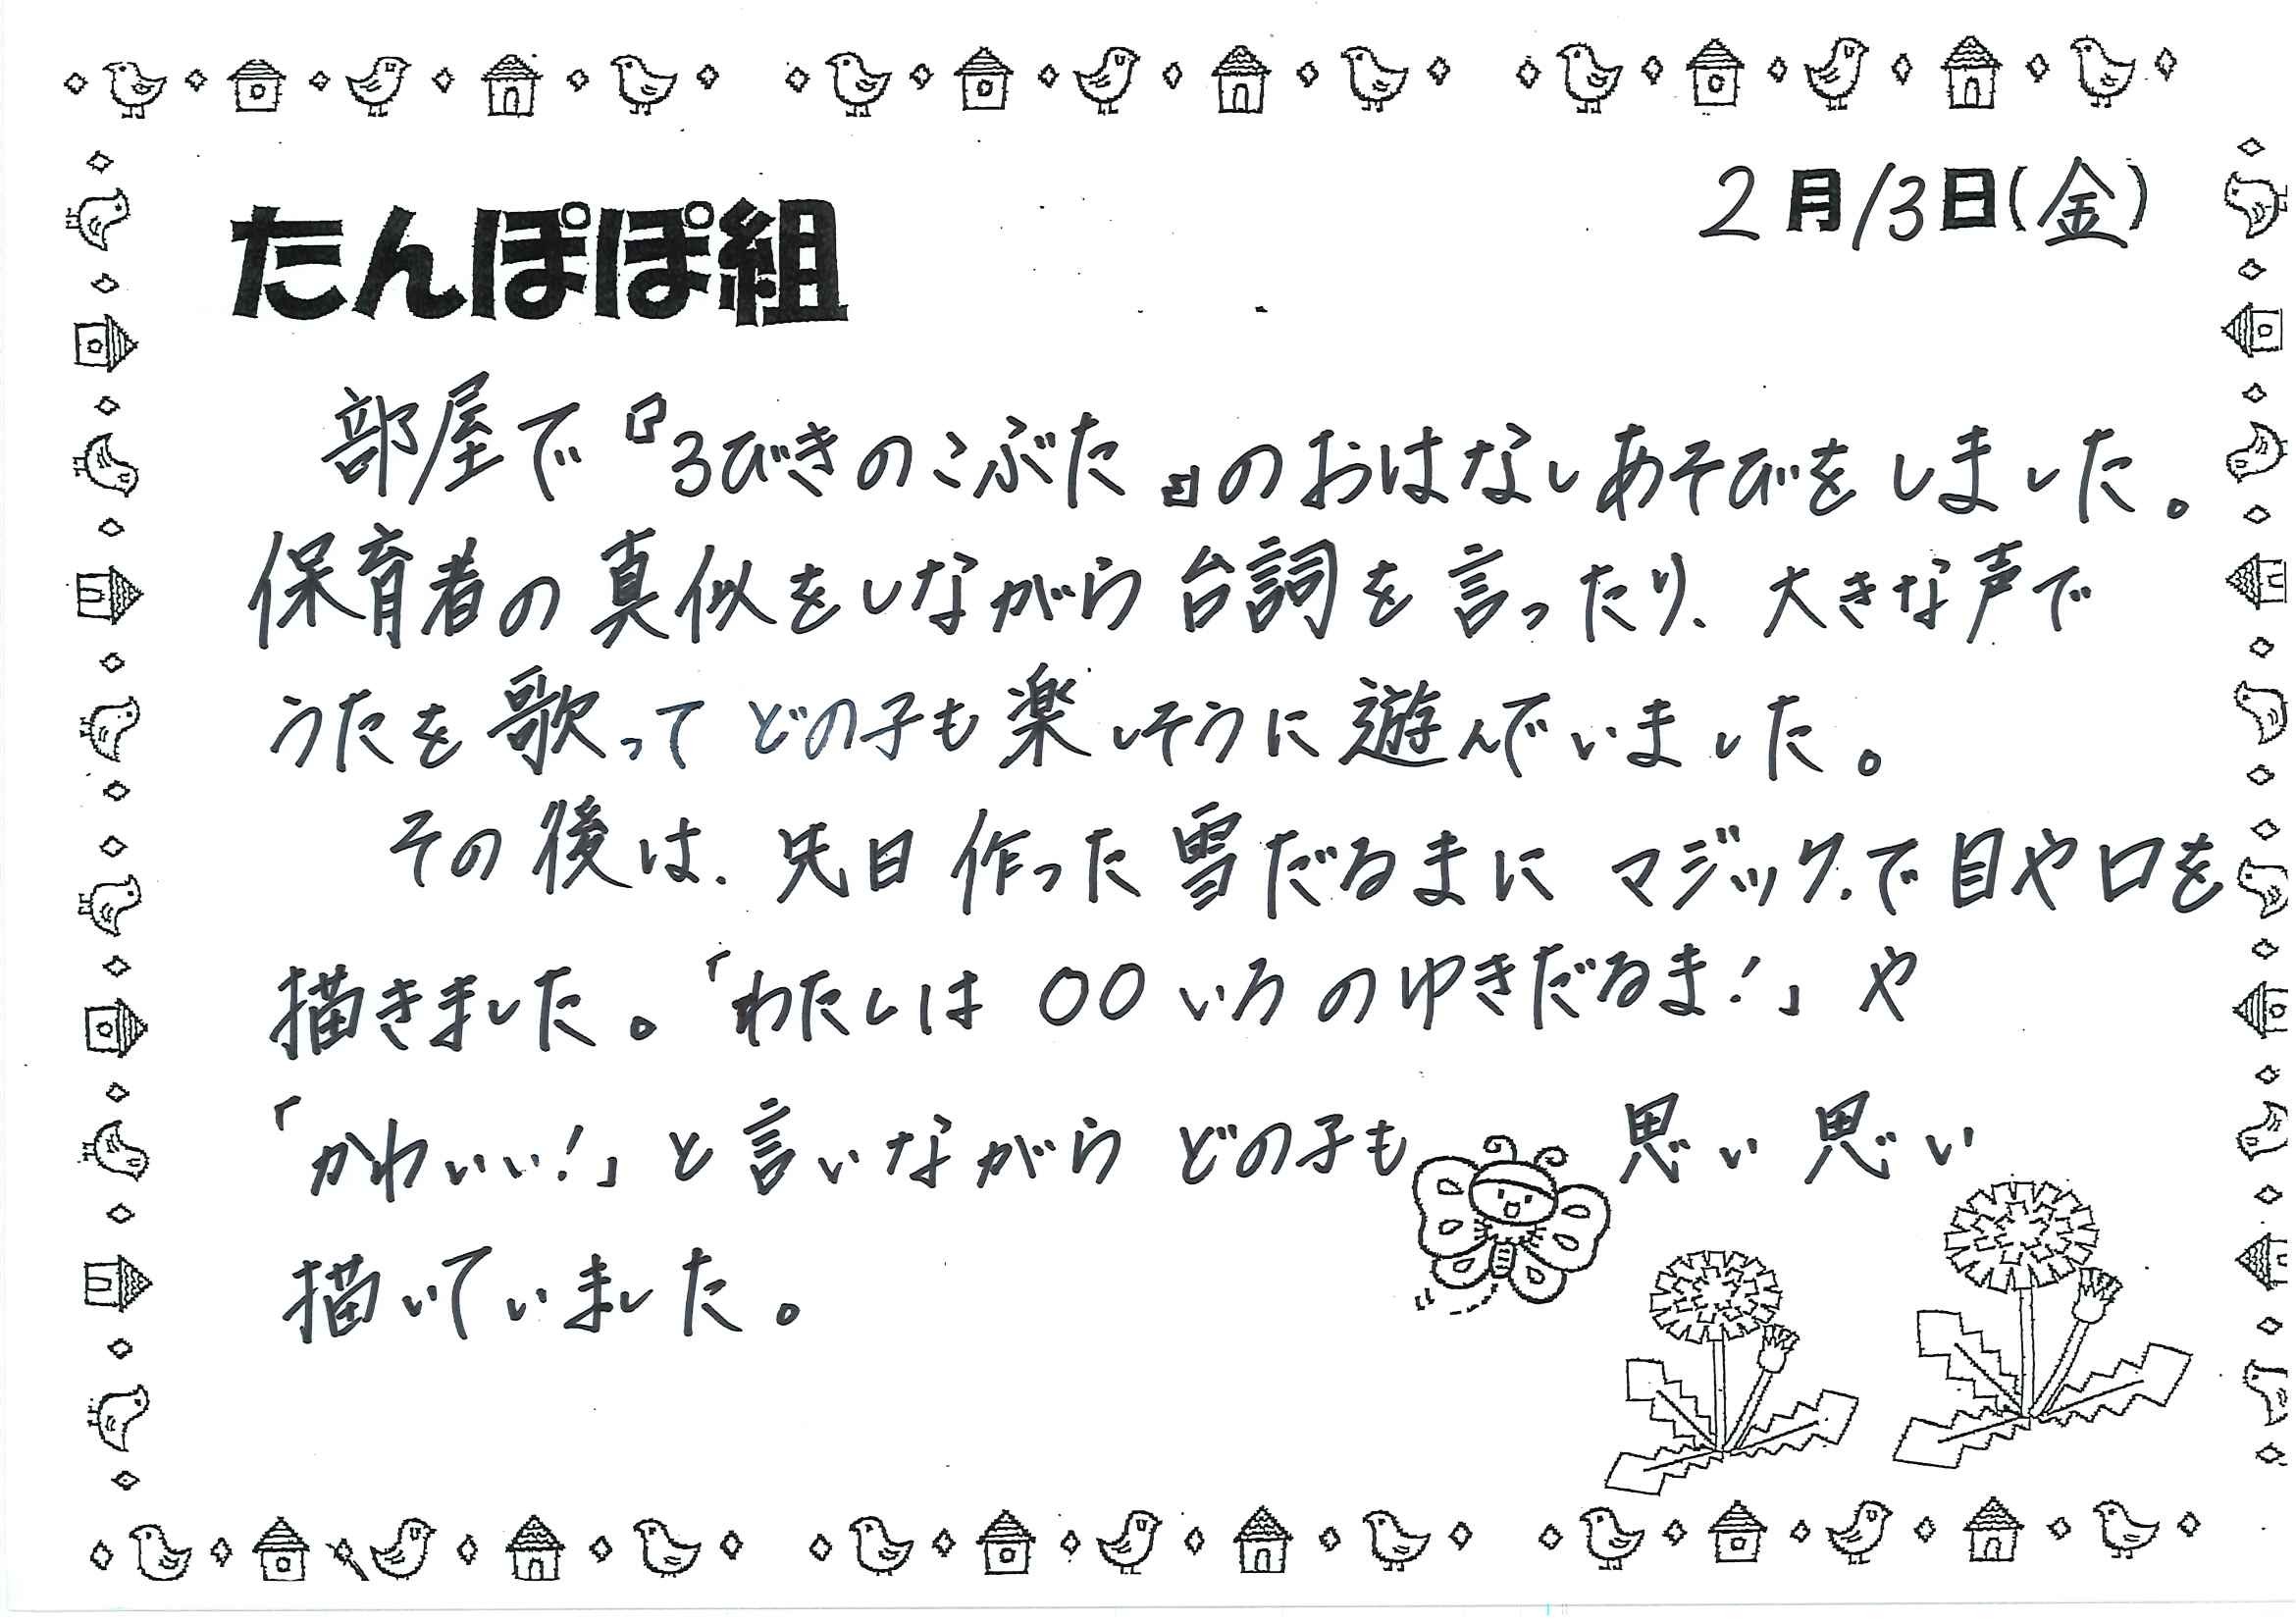 2月13日(金)
たんぽぽ組
部屋で『3びきのこぶた』のおはなしあそびをしました。
保育者の真似をしながら台詞を言ったり、大きな声で
うたを歌ってどの子も楽しそうに遊んでいました。
その後は、先日作った雪だるまにマジックで目や口を
描きました。「わたしは〇〇いろのゆきだるま!」や
「かわいい!」と言いながらどの子も思い思い
描いていました。